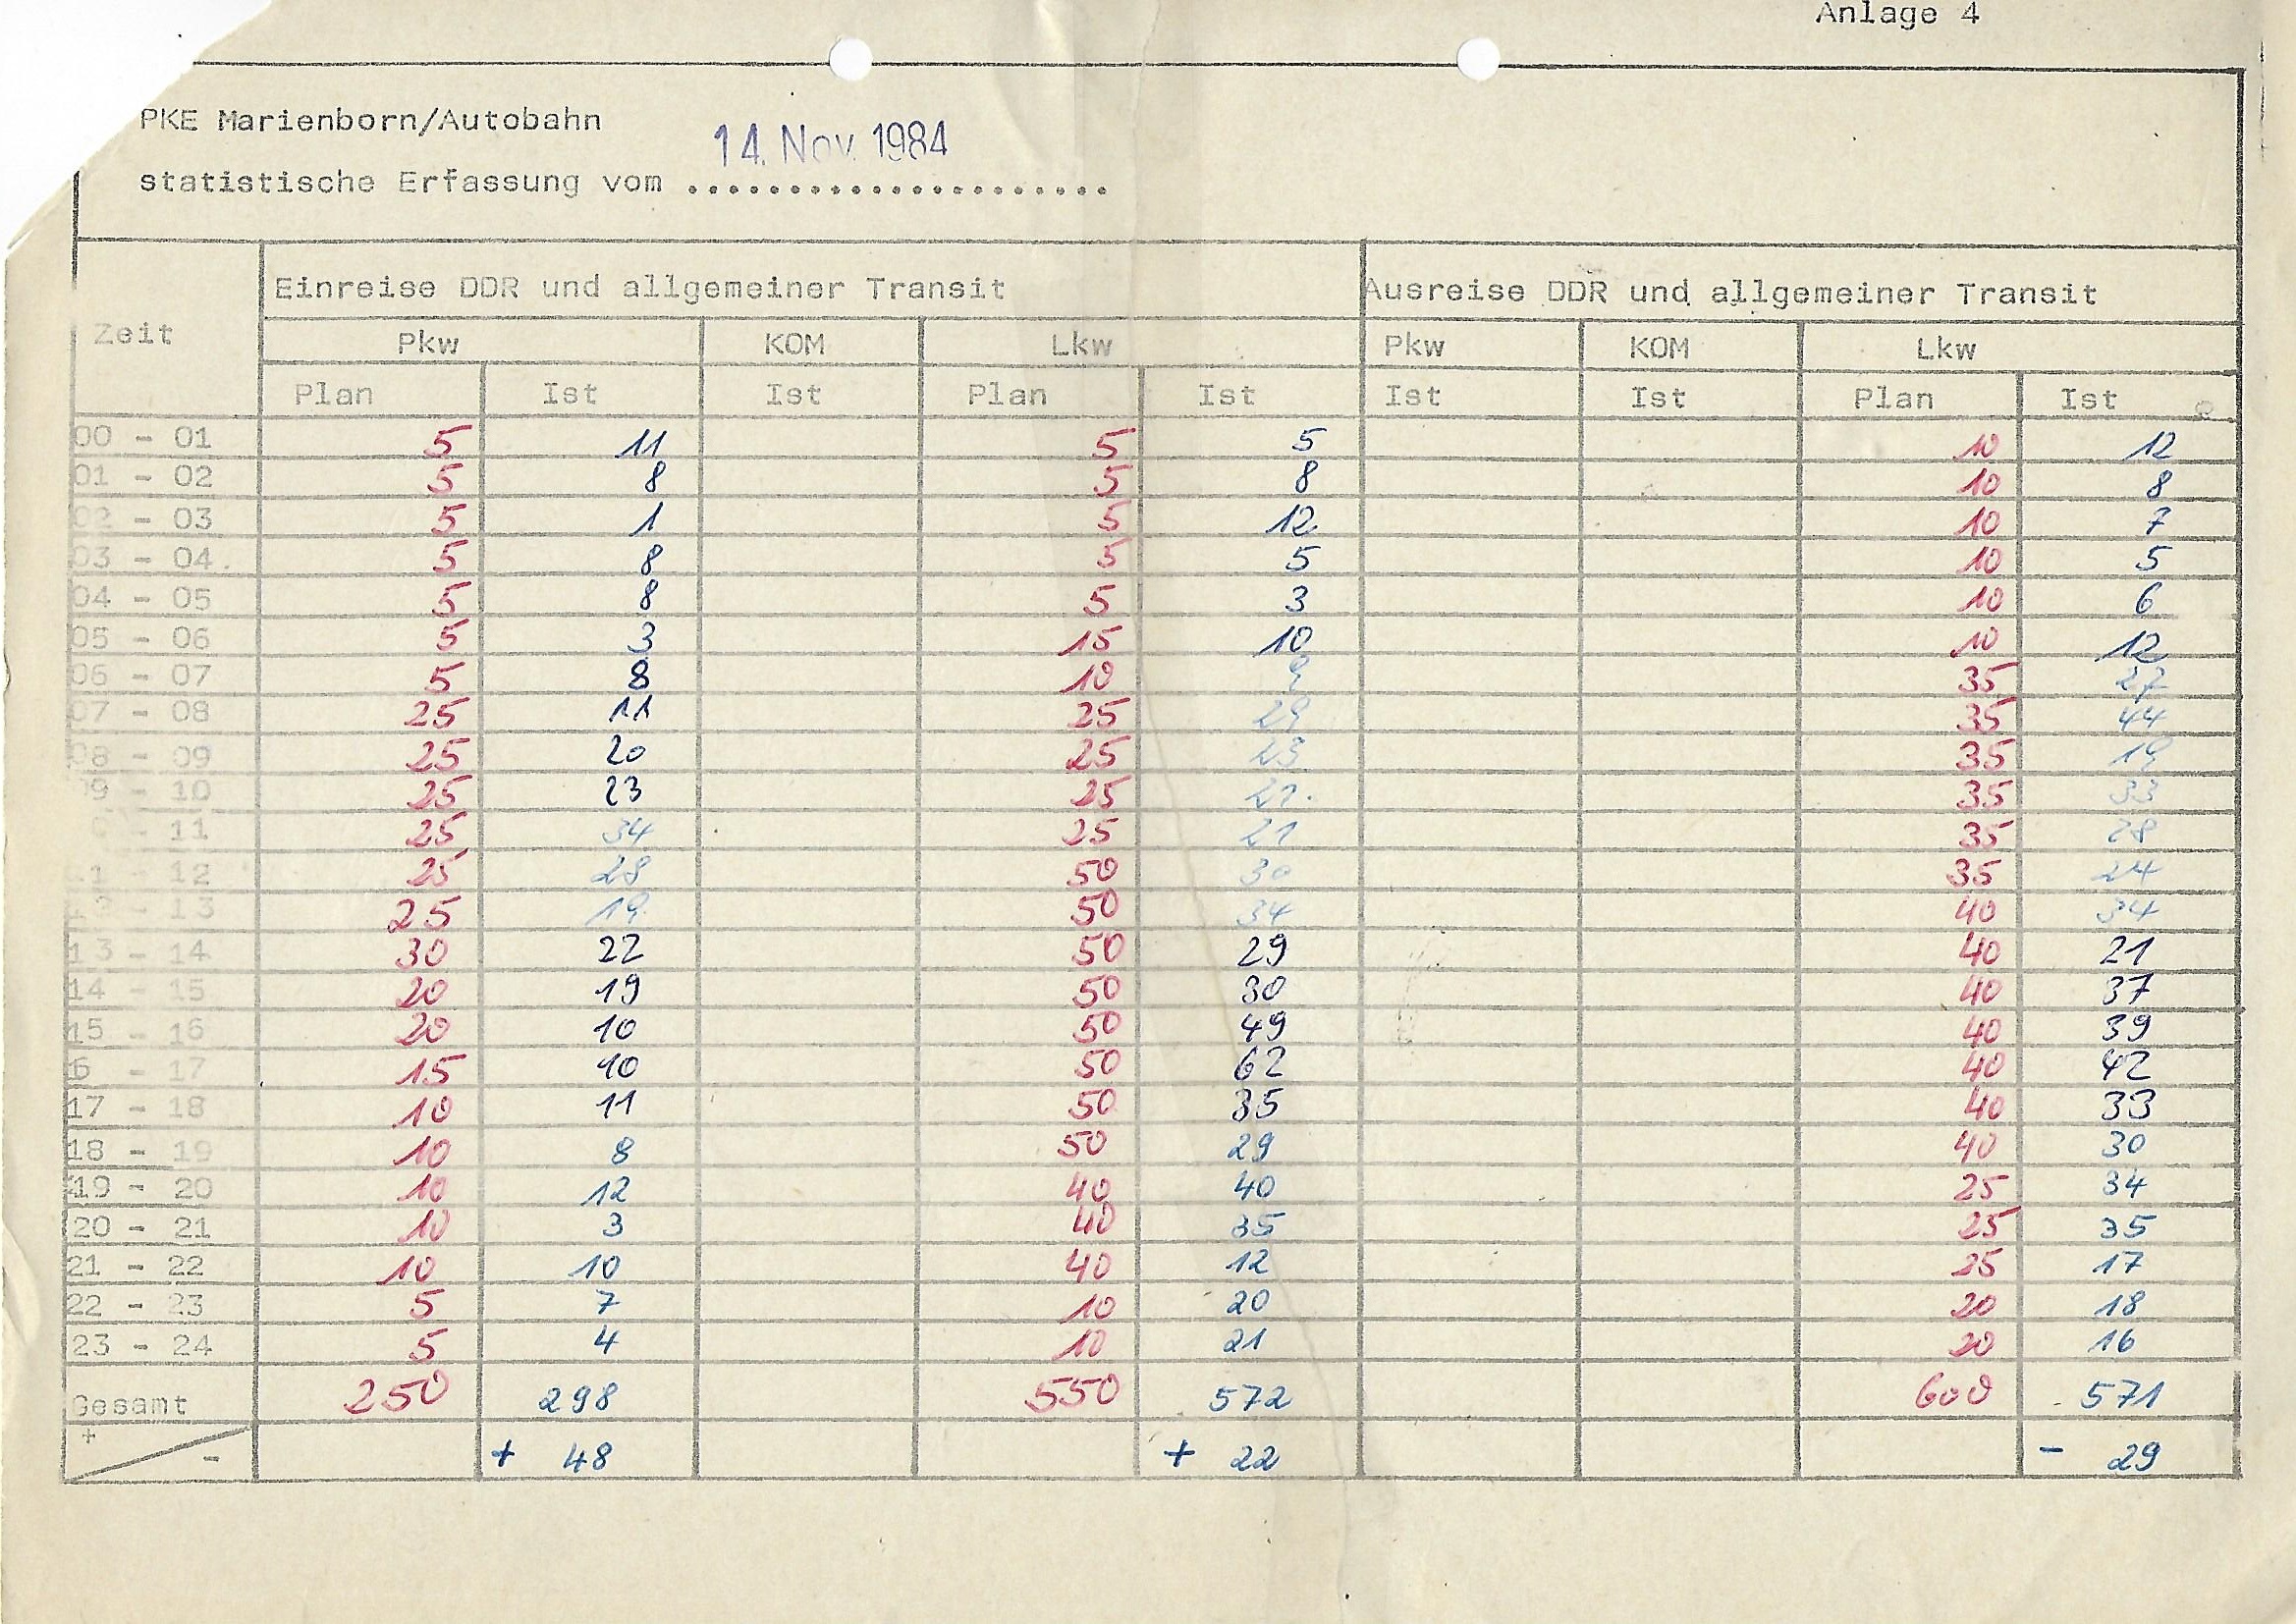 Anlage 4
PKE Marienborn/Autobahn
14. Nov. 1984
statistische Erfassung vom ......................
Einreise DDR und allgemeiner Transit Ausreise DDR und allgemeiner Transit
Zeit
Pkw KOM Lkw Pkw KOM Lkw
Plan Ist Ist Plan Ist Ist Ist Plan Ist
00 - 01 5 11 5 5 10 12
01 - 02 5 8 5 8 10 8
02 - 03 5 1 5 12 10 7
03 - 04. 5 8 5 5 10 5
04 - 05 5 8 5 3 10 6
05 - 06 5 3 15 10 10 12
06 - 07 5 8 10 9 35 27
07 - 08 25 11 25 29 35 44
08 - 09 25 20 25 23 35 19
09 - 10 25 23 25 21. 35 33
- 11 25 34 25 21 35 28
- 12 25 28 50 30 35 24
- 13 25 19 50 34 40 34
13 - 14 30 22 50 29 40 21
14 - 15 20 19 50 30 40 37
15 - 16 20 10 50 49 40 39
6 - 17 15 10 50 62 40 42
17 - 18 10 11 50 35 40 33
18 - 19 10 8 50 29 40 30
19 - 20 10 12 40 40 25 34
20 - 21 10 3 40 35 25 35
21 - 22 10 10 40 12 25 17
22 - 23 5 7 10 20 20 18
23 - 24 5 4 10 21 20 16
Gesamt 250 298 550 572 600 571
+ - + 48 + 22 - 29